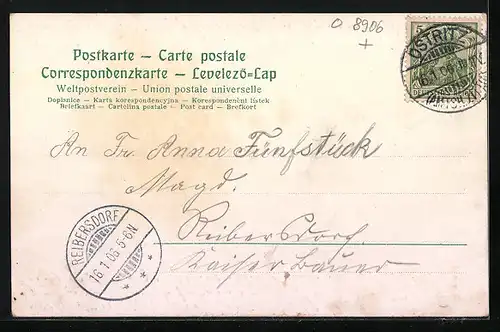 O 8906
+
Postkarte – Carte postale
Correspondenzkarte – Levelező-Lap
Weltpostverein – Union postale universelle
Dopisnice – Karta korespondencyjna – Korespondenční lístek
Briefkaart – Cartolina postale – Post card – Brefkort
5
OSTRITZ
16 1 06
An Fr. Anna Fünfstück
Magd.
Reibersdorf
Kaiser Bauer
REIBERSDORF
16 1 06 5-6N
* * *